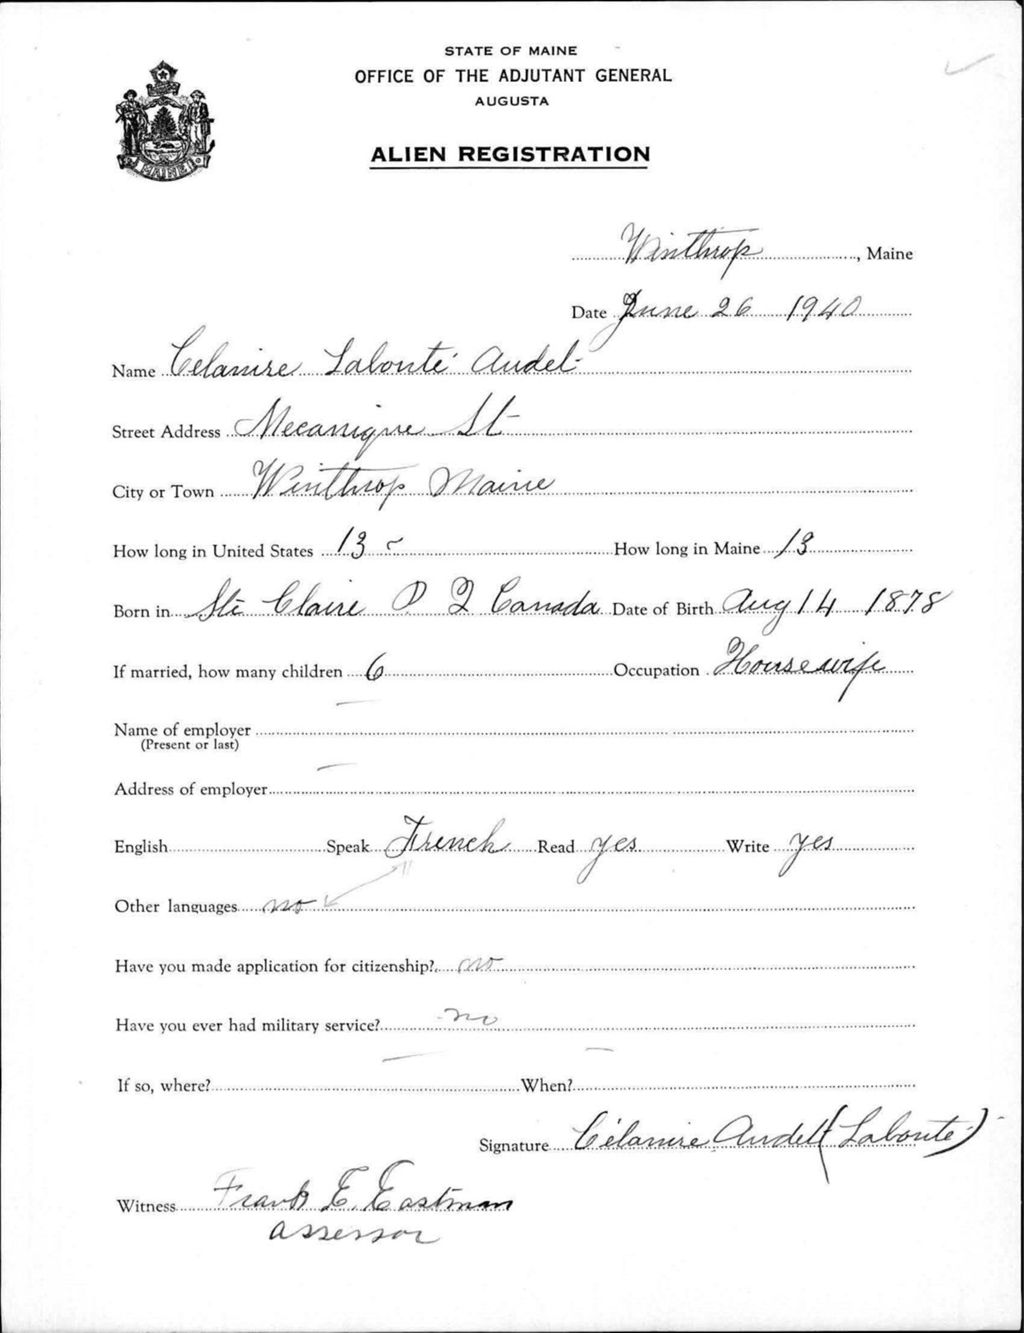 STATE OF MAINE
OFFICE OF THE ADJUTANT GENERAL
AUGUSTA
ALIEN REGISTRATION
MAINE
Winthrop, Maine
Date June 26 1940
Name Celanire Labonté Audet
Street Address Mecanique St
City or Town Winthrop Maine
How long in United States 13 How long in Maine 13
Born in Ste Claire P Q Canada Date of Birth Aug 14 1878
If married, how many children 6 Occupation Housewife
Name of employer
(Present or last)
Address of employer
English Speak French Read yes Write yes
Other languages no
Have you made application for citizenship? no
Have you ever had military service? no
If so, where? When?
Signature Célanire Audet (Labonte)
Witness Frank E. Eastman
assessor